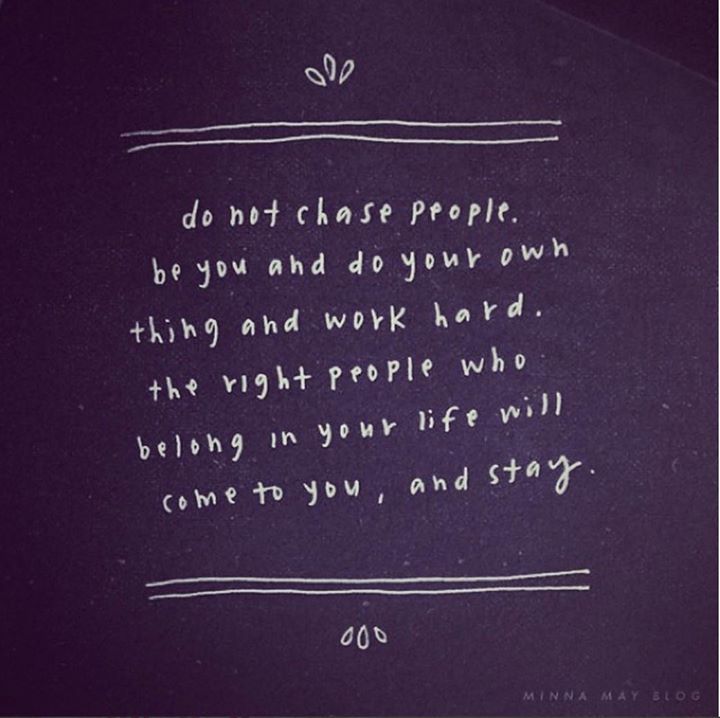 do not chase people.
be you and do your own
thing and work hard.
the right people who
belong in your life will
come to you, and stay.
MINNA MAY BLOG